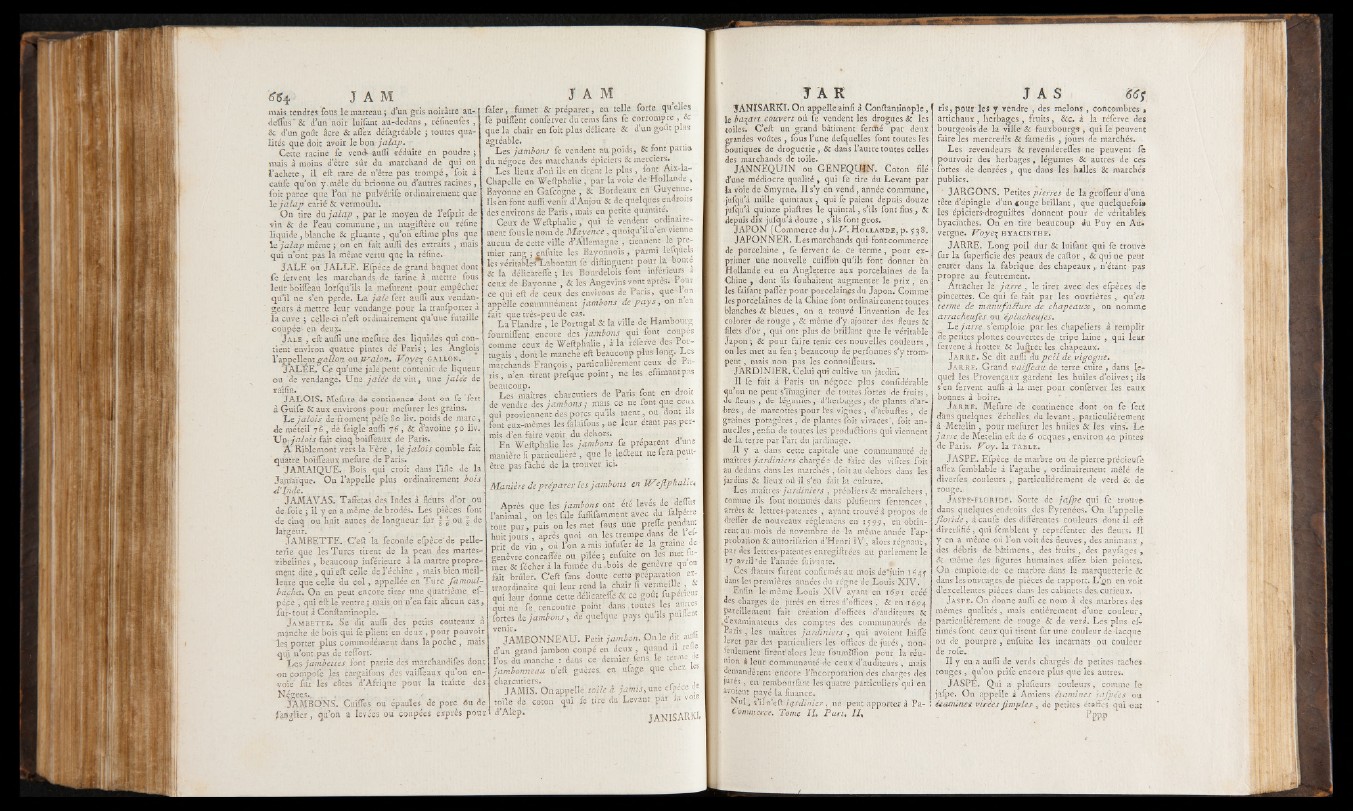 664 J A M
mais tendres sous le marteau ; d'un gris noirâtre au-
dessus & d'un noir luisant au-dedans , résineuses ,
& d'un goût âcre & assez désagréable ; toutes qua-
lités que doit avoir le bon jalap.
Cette racine se vend aussi réduite en poudre ;
mais à moins d'être sûr du marchand de qui on
l'achete , il est rare de n'être pas trompé, soit à
cause qu'on y mêle du brionne ou d'autres racines ,
soit parce que l'on ne pulvérise ordinairement que
le jalap carié & vermoulu.
On tire du jalap , par le moyen de l'esprit de
vin & de l'eau commune , un magistère ou résine
liquide , blanche & gluante , qu'on estime plus que
le jalap même ; on en fait aussi des extraits , mais
qui n'ont pas la même vertu que la résine.
JALE ou JALLE. Espèce de grand baquet dont
se servent les marchands de farine à mettre sous
leur boisseau lorsqu'ils la mesurent pour empêcher
qu'il ne s'en perde. La jale sert aussi aux vendan-
geurs à mettre leur vendange pour la transporter à
la cuve ; celle-ci n'est ordinairement qu'une futaille
coupée en deux.
JALE ; est aussi une mesure des liquides qui con-
tient environ quatre pintes de Paris ; les Anglois
l'appellent gallon ou Walon. Voyez GALLON.
JALÉE. Ce qu'une jale peut contenir de liqueur
ou de vendange. Une jalée de vin, une jalée de
raisin.
JALOIS. Mesure de continence dont on se sert
à Guise & aux environs pour mesurer les grains.
Le jalois de froment pèse 80 liv. poids de marc,
de méteil 76 , de seigle aussi 76 , & d'avoine 50 liv.
Un jalois fait cinq boisseaux de Paris.
A Riblemont vers la Fère , le jalois comble fait
quatre boisseaux mesure de Paris.
JAMAIQUE. Bois qui croit dans l'isle de la
Jamaïque. On l'appelle plus ordinairement bois
d'Inde.
JAMAVAS. Taffetas des Indes à fleurs d'or ou
de soie ; il y en a même de brodés. Les pièces sont
de cinq ou huit aunes de longueur sur
largeur.
JAMBETTE. C'est la seconde espèce de pelle-
terie que les Turcs tirent de la peau des martes-
zibelines , beaucoup inférieure à la martre propre-
ment dite , qui est celle de l'échine , mais bien meil-
leure que celle du col , appellée en Turc samoul-
bacha. On en peut encore tirer une quatrième es-
pèce , qui est le ventre ; mais on n'en fait aucun cas,
sur-tout à Constantinople.
JAMBETTE. Se dit aussi des petits couteaux à
manche de bois qui se plient en deux , pour pouvoir
les porter plus commodément dans la poche , mais
qui n'ont pas de ressort.
Les jambettes font partie des marchandises dont
on compose les cargaisons des vaisseaux qu'on en-
voie sur les côtes d'Afrique pour la traitte des
Nègres.
JAMBONS. Cuisses ou épaules de porc ou de
sanglier , qu'on a levées ou coupées exprès pour
J A M
saler, fumer & préparer, en telle sorte qu'elles
se puissent conserver du tems sans se corrompre , &
que la chair en soit plus délicate & d'un goût plus
agréable.
Les jambons se vendent au poids, & font partie
du négoce des marchands épiciers & merciers.
Les lieux d'où ils en tirent le plus , sont Aix-la-
Chapelle en Westphalie, par la voie de Hollande ,
Bayonne en Gascogne , & Bordeaux en Guyenne.
Ils en font aussi venir d'Anjou & de quelques endroits
des environs de Paris, mais en petite quantité.
Ceux de Westphalie , qui se vendent ordinaire-
ment sous le nom de Mayence , quoiqu'il n'en vienne
aucun de cette ville d'Allemagne , tiennent le pre-
mier rang ; ensuite les Bayonnois , parmi lesquels
les véritables Lahontan se distinguent pour la bonté
& la délicatesse ; les Bourdelois sont inférieurs à
ceux de Bayonne , & les Angevins vont après. Pour
ce qui est de ceux des environs de Paris, que l'on
appelle communément jambons de pays , on n'en
fait que très-peu de cas.
La Flandre , le Portugal & la ville de Hambourg
fournissent encore des jambons qui sont coupés
comme ceux de Westphalie , à la réserve des Por-
tugais , dont le manche est beaucoup plus long. Les
marchands François , particulièrement ceux de Pa-
ris , n'en tirent presque point , ne les estimant pas
beaucoup.
Les maîtres charcutiers de Paris sont en droit
de vendre des jambons ; mais ce ne sont que ceux
qui proviennent des porcs qu'ils tuent , ou dont ils
font eux-mêmes les salaisons , ne leur étant pas per-
mis d'en faire venir du dehors.
En Westphalie les jambons se préparent d'une
manière si particulière , que le lecteur ne sera peut-
être pas fâché de la trouver ici.
Manière de préparer les jambons en Westphalie.
Après que les jambons ont été levés de dessus
l'animal, on les sale suffisamment avec du salpêtre
tout pur , puis on les met sous une presse pendant
huit jours , après quoi on les trempe dans de l'es-
prit de vin , où l'on a mis infuser de la graine de
genèvre concassée ou pilée ; ensuite on les met fu-
mer & sécher à la fumée du bois de genèvre qu'on
fait brûler. C'est sans doute cette préparation ex-
traordinaire qui leur rend la chair si vermeille , &
qui leur donne cette délicatesse & ce goût supérieur
qui ne se rencontre point dans toutes les autres
sortes de jambons , de quelque pays qu'ils puissent
venir.
JAMBONNEAU. Petit jambon. On le dit aussi
d'un grand jambon coupé en deux , quand il reste
l'os du manche : dans ce dernier sens le terme de
jambonneau n'est guères en usage que chez les
charcutiers.
JAMIS. On appelle toile à jamis, une espèce de
toile de coton qui se tire du Levant par la voie
d'Alep.
JANISARKI.
J A R
JANISARKI. On appelle ainsi à Constantinople ,
le bazare couvert où se vendent les drogues & les
toiles. C'est un grand bâtiment fermé par deux
grandes voûtes , sous l'une desquelles sont toutes les
boutiques de droguerie , & dans l'autre toutes celles
des marchands de toile.
JANNEQUIN ou GENEQUIN. Coton filé
d'une médiocre qualité , qui se tire du Levant par
la voie de Smyrne. Il s'y en vend, année commune,
jusqu'à mille quintaux , qui se paient depuis douze
jusqu'à quinze piastres le quintal , s'ils sont fins , &
depuis dix jusqu'à douze , s'ils sont gros.
JAPON (Commerce du). V. HOLLANDE, p. 538.
JAPONNER. Les marchands qui font commerce
de porcelaine , se servent de ce terme, pour ex-
primer une nouvelle cuisson qu'ils font donner en
Hollande ou en Angleterre aux porcelaines de la
Chine , dont ils souhaitent augmenter le prix , en
les faisant passer pour porcelaines du Japon. Comme
les porcelaines de la Chine sont ordinairement toutes
blanches & bleues , on a trouvé l'invention de les
colorer de rouge , & même d'y ajouter des fleurs &
filets d'or , qui ont plus de brillant que le véritable
Japon ; & pour faire tenir ces nouvelles couleurs ,
on les met au feu ; beaucoup de personnes s'y trom-
pent , mais non pas les connoisseurs.
JARDINIER. Celui qui cultive un jardin.
Il se fait à Paris un négoce plus considérable
qu'on ne peut s'imaginer de toutes sortes de fruits ,
de fleurs , de légumes, d'herbages , de plantes d'ar-
bres , de marcottes pour les vignes , d'arbustes , de
graines potagères , de plantes soit vivaces , soit an-
nuelles , enfin de toutes les productions qui viennent
de la terre par l'art du jardinage.
Il y a dans cette capitale une communauté de
maîtres jardiniers chargés de faire des visites soit
au dedans dans les marchés , soit au dehors dans les
jardins & lieux où il s'en fait la culture.
Les maîtres jardiniers , préaliers & maraîchers ,
comme ils sont nommés dans plusieurs sentences ,
arrêts & lettres-patentes , ayant trouvé à propos de
dresser de nouveaux réglemens en 1599, en obtin-
rent au mois de novembre de la même année l'ap-
probation & autorisation d'Henri IV , alors régnant,
par des lettres-patentes enregistrées au parlement le
17 avril de l'année suivante.
Ces statuts furent confirmés au mois de juin 1645
dans les premières années du règne de Louis XIV.
Enfin le même Louis XIV ayant en 1691 créé
des charges de jurés en titres d'offices , & en 1694
pareillement fait création d'offices d'auditeurs &
d'examinateurs des comptes des communautés de
Paris , les maîtres jardiniers , qui avoient laissé
lever par des particuliers les offices de jurés , non-
seulement firent alors leur soumission pour la réu-
nion à leur communauté de ceux d'auditeurs , mais
demandèrent encore l'incorporation des charges des
jurés , en remboursant les quatre particuliers qui en
avoient payé la finance.
Nul , s'il n'est jardinier , ne peut apporter à Pa-
Commerce. Tome II. Part. II.
J A S 665
ris, pour les y vendre , des melons , concombres ,
artichaux , herbages , fruits , &c. à la réserve des
bourgeois de la ville & fauxbourgs , qui le peuvent
faire les mercredis & samedis , jours de marchés.
Les revendeurs & revenderesses ne peuvent se
pourvoir des herbages , légumes & autres de ces
sortes de denrées , que dans les halles & marchés
publics.
JARGONS. Petites pierres de la grosseur d'une
tête d'épingle d'un rouge brillant , que quelquefois
les épiciers-droguistes donnent pour de véritables
hyacinthes. On en tire beaucoup du Puy en Au-
vergne. Voyez HYACINTHE.
JARRE. Long poil dur & luisant qui se trouve
sur la superficie des peaux de castor , & qui ne peut
entrer dans la fabrique des chapeaux , n'étant pas
propre au feutrement.
Arracher le jarre , le tirer avec des espèces de
pincettes. Ce qui se fait par les ouvrières , qu'en
terme de manufacture de chapeaux , on nomme
arracheuses ou éplucheuses.
Le jarre s'emploie par les chapeliers à remplir
de petites plones couvertes de tripe laine , qui leur
servent à frotter & lustrer les chapeaux.
JARRE. Se dit aussi du poil de vigogne.
JARRE. Grand vaisseau de terre cuite , dans le-
quel les Provençaux gardent les huiles d'olives ; ils
s'en servent aussi à la mer pour conserver les eaux
bonnes à boire.
JARRE. Mesure de continence dont on se sert
dans quelques échelles du levant , particulièrement
à Metelin , pour mesurer les huiles & les vins. Le
jarre de Metelin est de 6 ocques , environ 40 pintes
de Paris. Voy. la TABLE.
JASPE. Espèce de marbre ou de pierre précieuse
assez semblable à l'agathe , ordinairement mêlé de
diverses couleurs , particulièrement de verd & de
rouge.
JASPE-FLORIDE. Sorte de jaspe qui se trouve
dans quelques endroits des Pyrenées. On l'appelle
floride , à cause des différentes couleurs dont il est
diversifié , qui semblent y représenter des fleurs. Il
y en a même où l'on voit des fleuves , des animaux ,
des débris de bâtimens , des fruits , des paysages ,
& même des figures humaines assez bien peintes.
On emploie de ce marbre dans la marqueterie &
dans les ouvrages de pièces de rapport. L'on en voit
d'excellentes pièces dans les cabinets des curieux.
JASPE. On donne aussi ce nom à des marbres des
mêmes qualités , mais entièrement d'une couleur ,
particulièrement de rouge & de verd. Les plus es-
timés sont ceux qui tirent sur une couleur de lacque
ou de pourpre , ensuite les incarnats ou couleur
de rose.
Il y en a aussi de verds chargés de petites taches
rouges , qu'on prise encore plus que les autres.
JASPÉ. Qui a plusieurs couleurs , comme le
jaspe. On appelle à Amiens étamines jaspées ou
étamines virées simples , de petites étoffes qui ont
Pppp